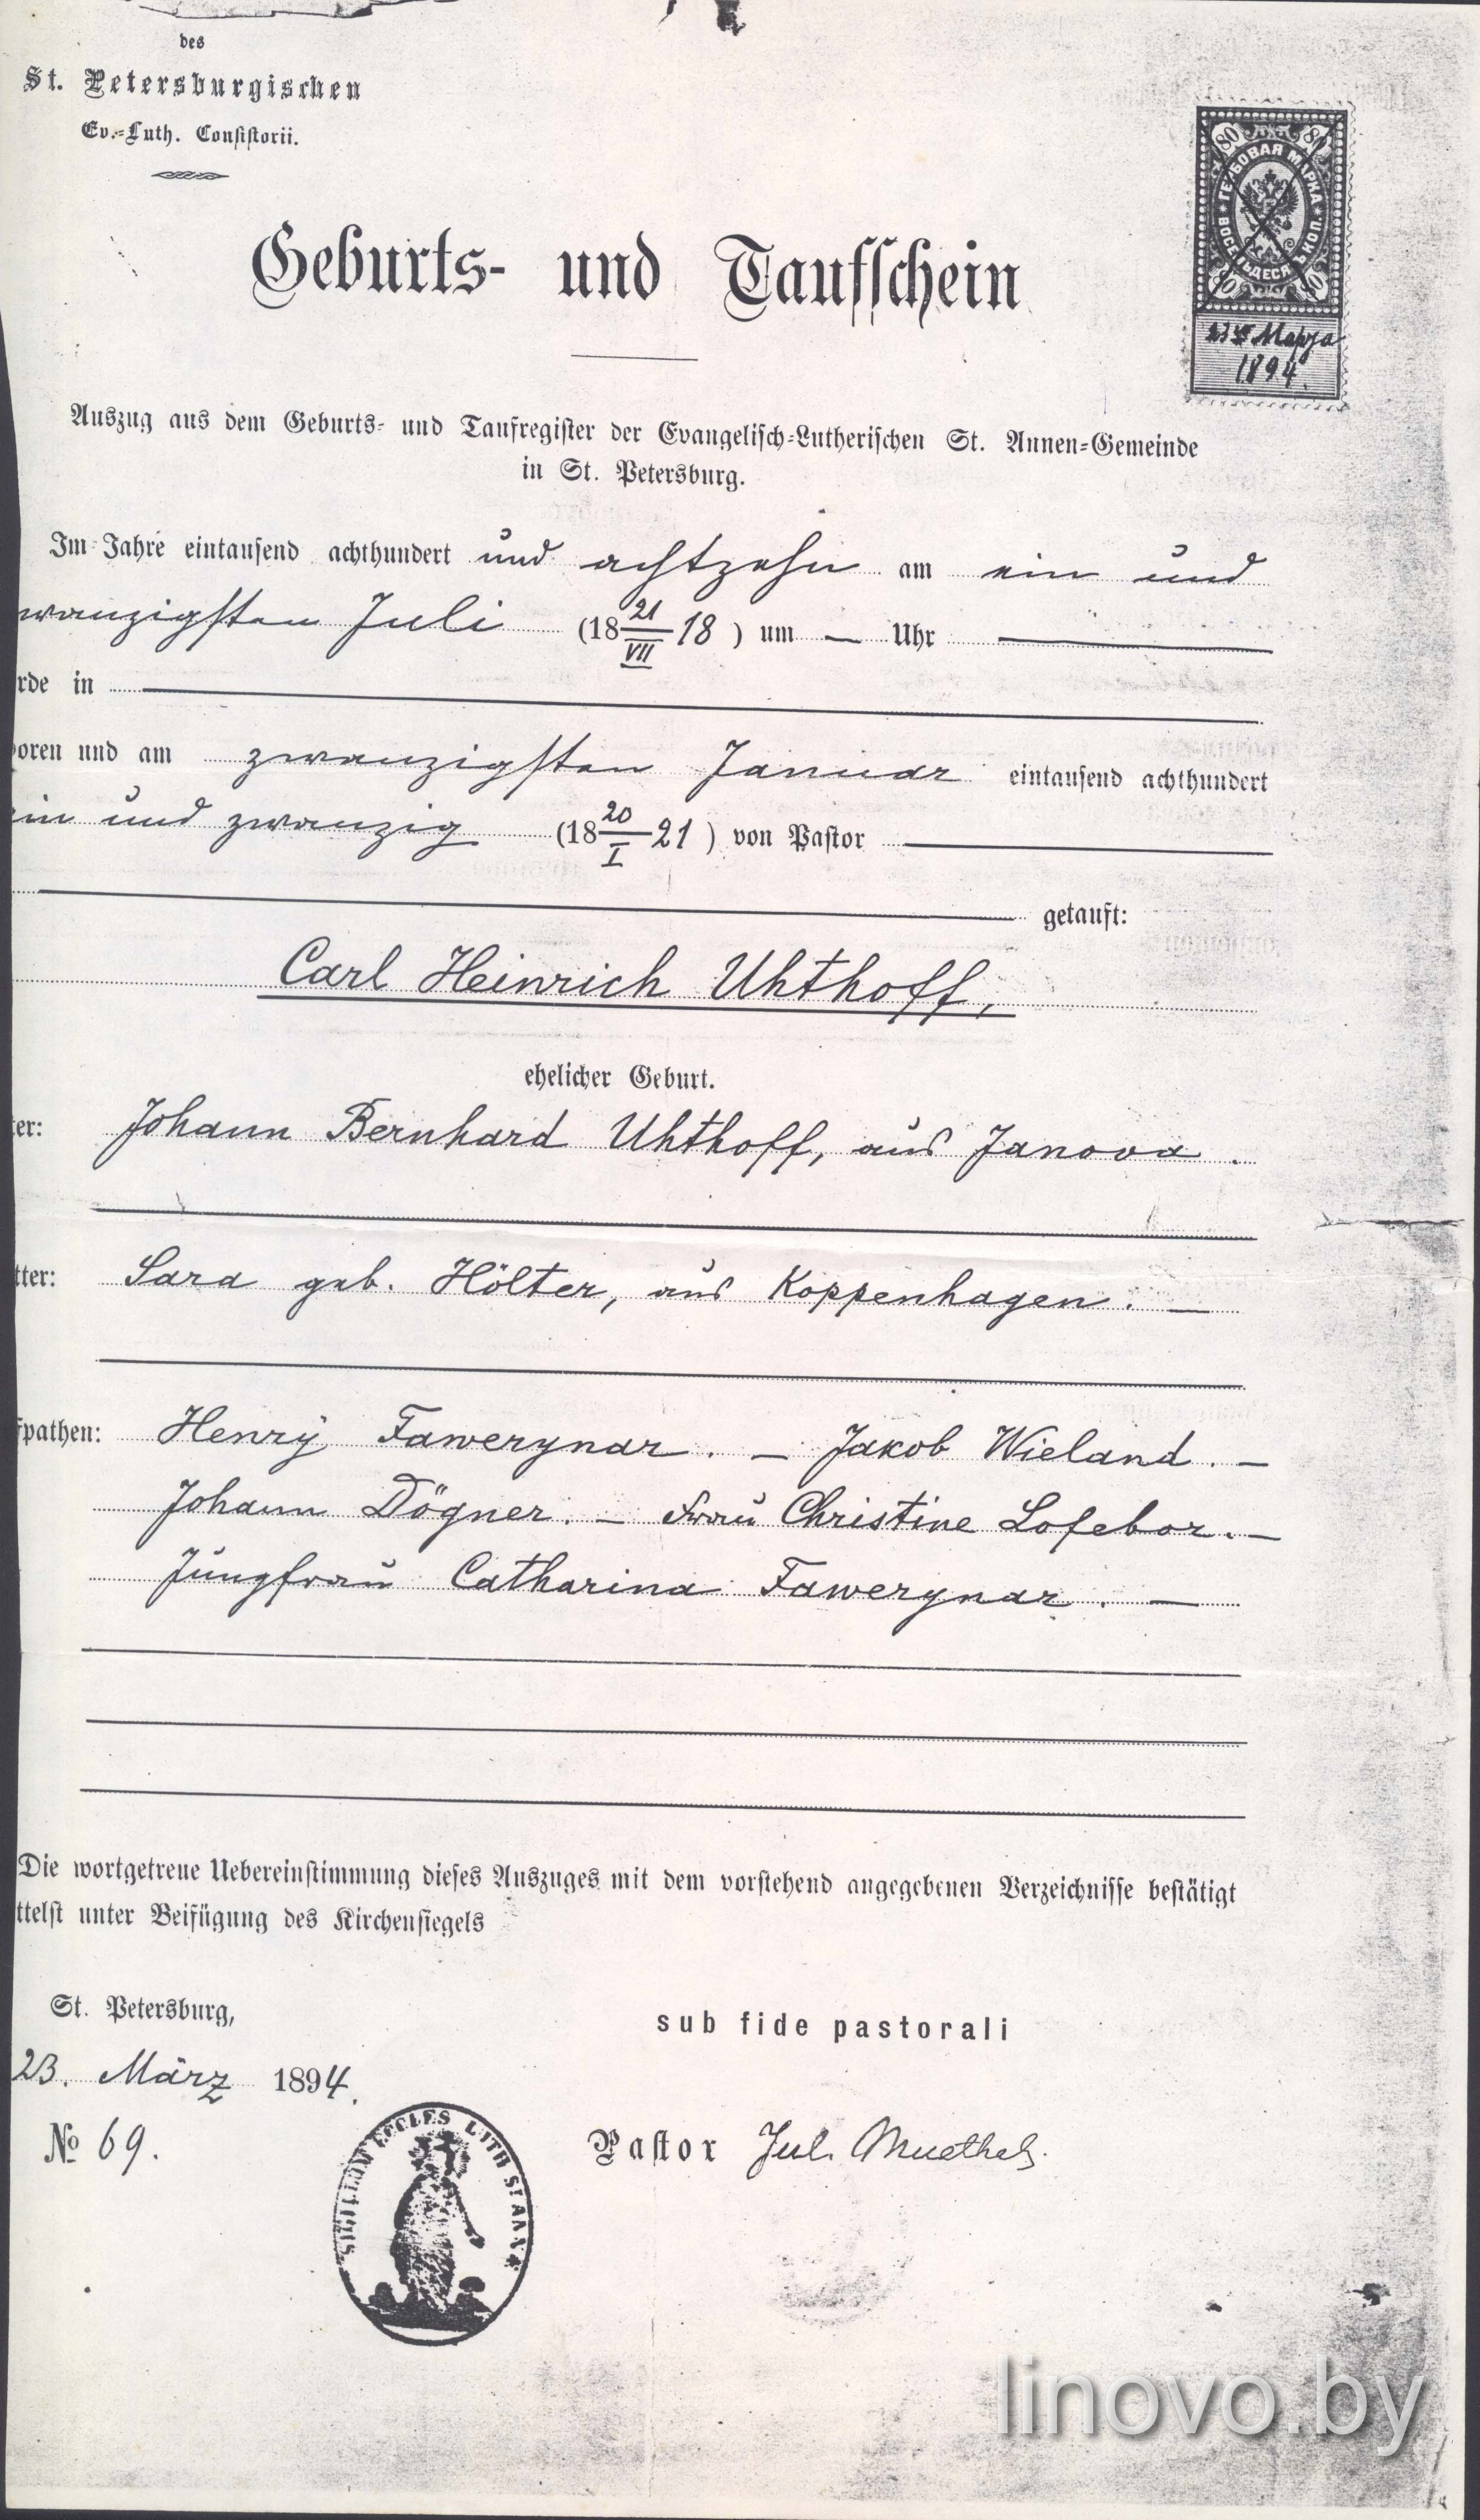 des
St. Petersburgischen
Ev.-Luth. Consistorii.
80 80
ГЕРБОВАЯ МАРКА
ВОСЕМЬДЕСЯТЪ КОП.
80 80
23го Марта
1894.
Geburts- und Taufschein
Auszug aus dem Geburts- und Taufregister der Evangelisch-Lutherischen St. Annen-Gemeinde
in St. Petersburg.
Im Jahre eintausend achthundert und achtzehn am ein und
wanzigsten Juli (18 21/VII 18) um — Uhr
rde in
boren und am zwanzigsten Januar eintausend achthundert
ein und zwanzig (18 20/I 21) von Pastor
getauft:
Carl Heinrich Uhthoff,
ehelicher Geburt.
ter: Johann Bernhard Uhthoff, aus Janova.
tter: Sara geb. Hölter, aus Koppenhagen. —
fpathen: Henry Fawerynar. — Jakob Wieland. —
Johann Dögner. — Frau Christine Lofebor. —
Jungfrau Catharina Fawerynar. —
Die wortgetreue Uebereinstimmung dieses Auszuges mit dem vorstehend angegebenen Verzeichnisse bestätigt
ttelst unter Beifügung des Kirchensiegels
St. Petersburg,
sub fide pastorali
23. März 1894.
№ 69.
Pastor Jul. Muethel.
SIGILLUM ECCLES LUTH ST ANNÆ
linovo.by